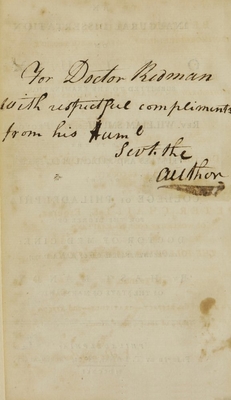 For Doctor Redman
with respectful compliments
from his Huml
Servt. the
author